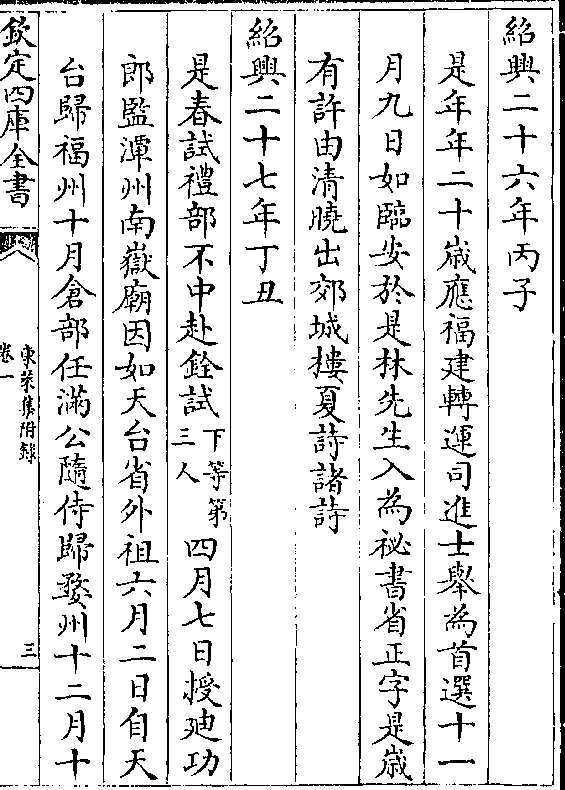 紹興二十六年丙子
是年年二十歳應福建轉運司進士舉為首選十一
月九日如臨安於是林先生入為祕書省正字是歳
有許由清曉出郊城樓夏詩諸詩
紹興二十七年丁丑
是春試禮部不中赴銓試下等第三人四月七日授廸功
郎監潭州南嶽廟因如天台省外祖六月二日自天
台歸福州十月倉部任滿公隨侍歸婺州十二月十
欽定四庫全書
東萊集附錄
卷一
三